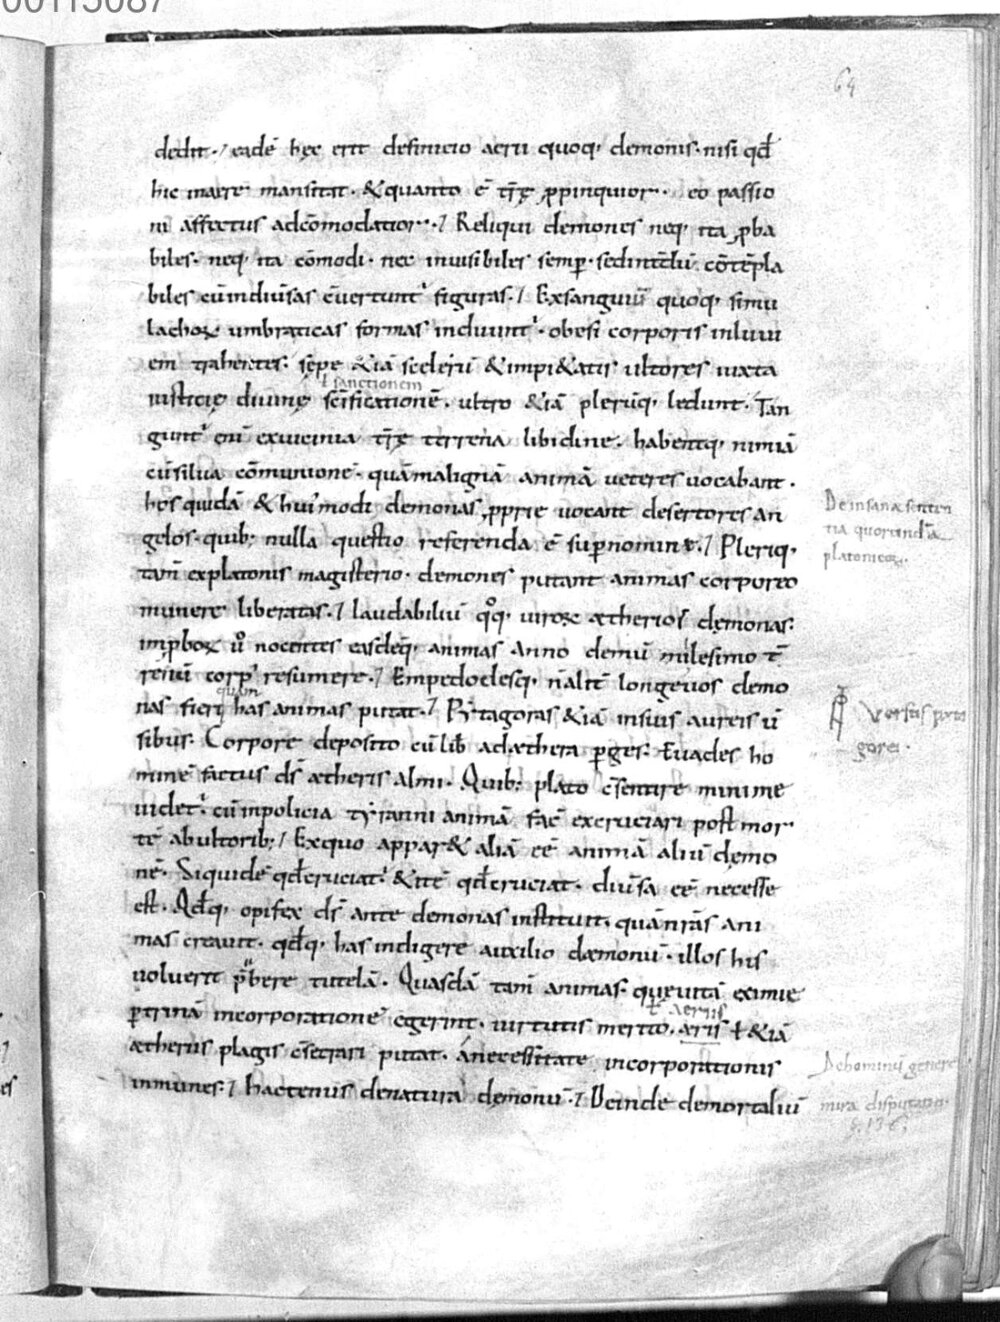 00113087
64
dedit. eadē hęc erit definicio aerii quoq; demonis. nisi qđ
hic in aere mansitat. & quanto ē tr̄ę ꝓpinquior. eo passio
ni affectus adcōmodatior. Reliqui demones neq; ita ꝓba
biles. neq; ita cōmodi. nec inuisibiles semꝑ. sed int̄dū. cōtēpla
biles cū in diuersas cuertunt᷑ figuras. Exsanguiū quoq; simu
lachroꝝ umbraticas formas induunt᷑. obesi corporis inluui
em trahentes. sępe &iā scelerū & impi&atis ultores iuxta
ł sanctionem
iusticię diuinę sc̄ificationē. ultro &iā pleruq; ledunt. Tan
gunt᷑ enī ex uicinia tr̄ę terrena libidine. habentq; nimiā
cū silua cōmunionē. quā malignā animā ueteres uocabant.
hos quidā & hui᷒modi demonas ꝓprie uocant desertores an
gelos. quib; nulla questio referenda ē suꝑ nomine. Pleriq;
tam̄ ex platonis magisterio. demones putant animas corporeo
munere liberatas. laudabiliū qͦq; uiroꝝ ætherios demonas.
imꝓboꝝ ůo nocentes easdēq; animas anno demū milesimo t̄
renū corp᷒ resumere. Empedoclesq; n̄ alit̄ longeuos demo
quam
nas fieri has animas putat. Pytagoras &iā in suis aureis ū
sibus. Corpore deposito cū lib̄ ad æthera perges. Euades ho
minē factus ds̄ ætheris almi. Quib; plato c̄sentire minime
uidet᷑. cū in policia tyranni animā fac̄ excruciari post mor
tē ab ultorib; Ex quo appar& aliā ēē animā aliū dęmo
nē. Siquidē qđ cruciat᷑ & itē qđ cruciat. diūsa ēē necesse
est. Qđq; opifex ds̄ ante demonas instituit. quā nr̄as ani
mas creauit. qđq; has indigere auxilio dæmonū. illos his
uoluerit p̄bere tutelā. Quasdā tam̄ animas. que uitā eximie
ł aeriis
ꝑ trinā incorporationē egerint. uirtutis merito. aris ł &iā
ætheriis plagis c̄secrari putat. a necessitate incorporationis
inmunes. hactenus de natura dęmonū. Deinde de mortaliū
De insana senten
tia quorundā
platonicoꝝ.
Versus pyta
gorei.
De hominū genere
mira disputatio.